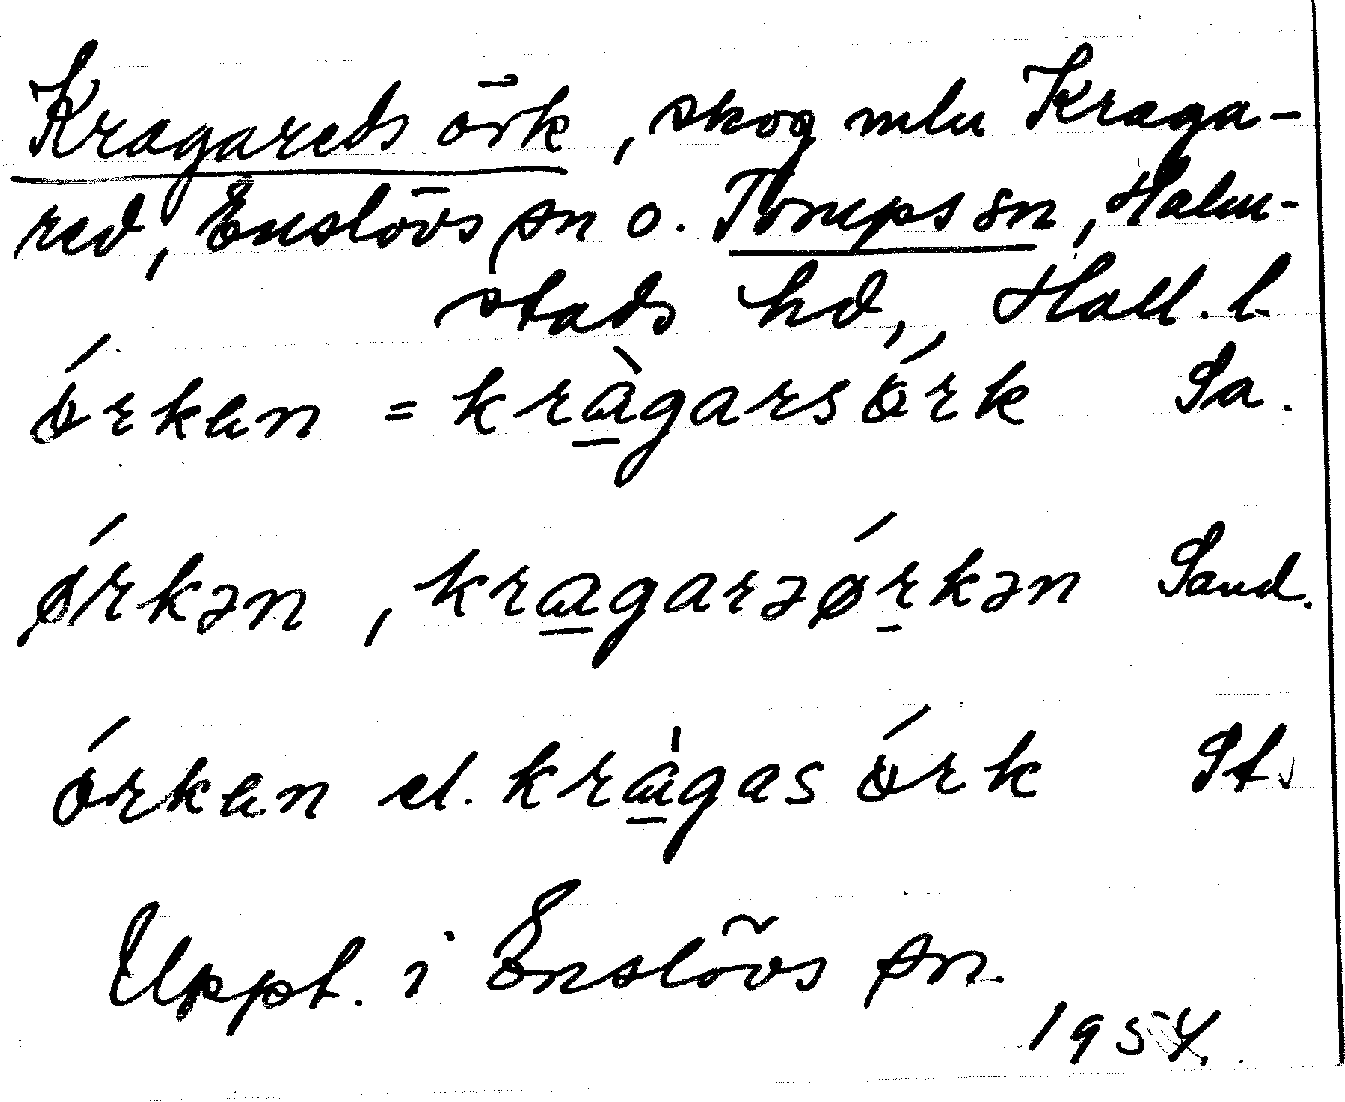 Kragareds örk, skog mln Kraga-
red, Enslövs sn o. Torups sn, Halm-
stads hd, Hall. l.
órkan = kràgarsórk Sa.
ǿrkən, kragarəǿrkən Sand.
órkan el. kràgas órk St.
Uppt. i Enslövs sn.
1954.